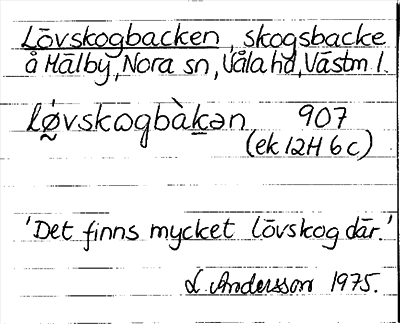 Lövskogbacken, skogsbacke
å Mälby, Nora sn, Våla hd, Västm l.
lǿ̰vskωgbàk̲ən 907
(ek 12H 6c)
'Det finns mycket lövskog där.'
L. Andersson 1975.